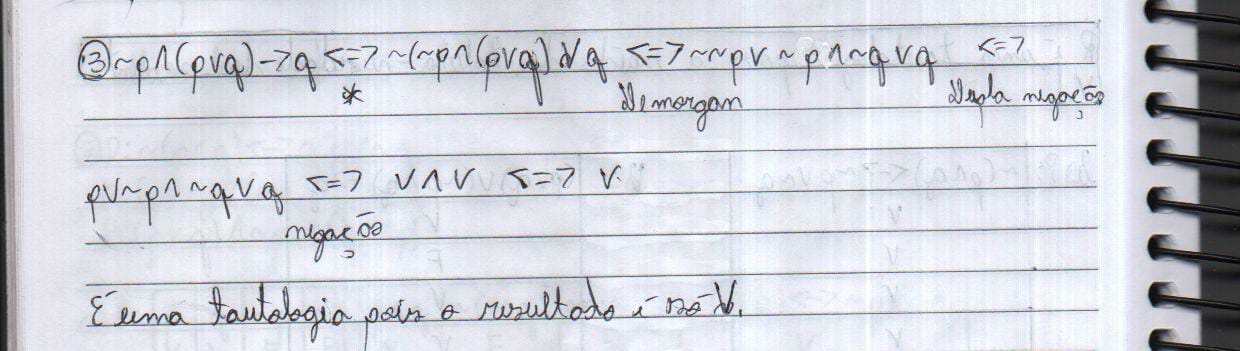 ③ ~p∧(p∨q)→q <=> ~(~p∧(p∨q)∨q <=> ~~p∨~p∧~q∨q <=>
* Demorgan Dupla negação
p∨~p∧~q∨q <=> V∧V <=> V.
negação
É uma tautologia pois o resultado é só V.